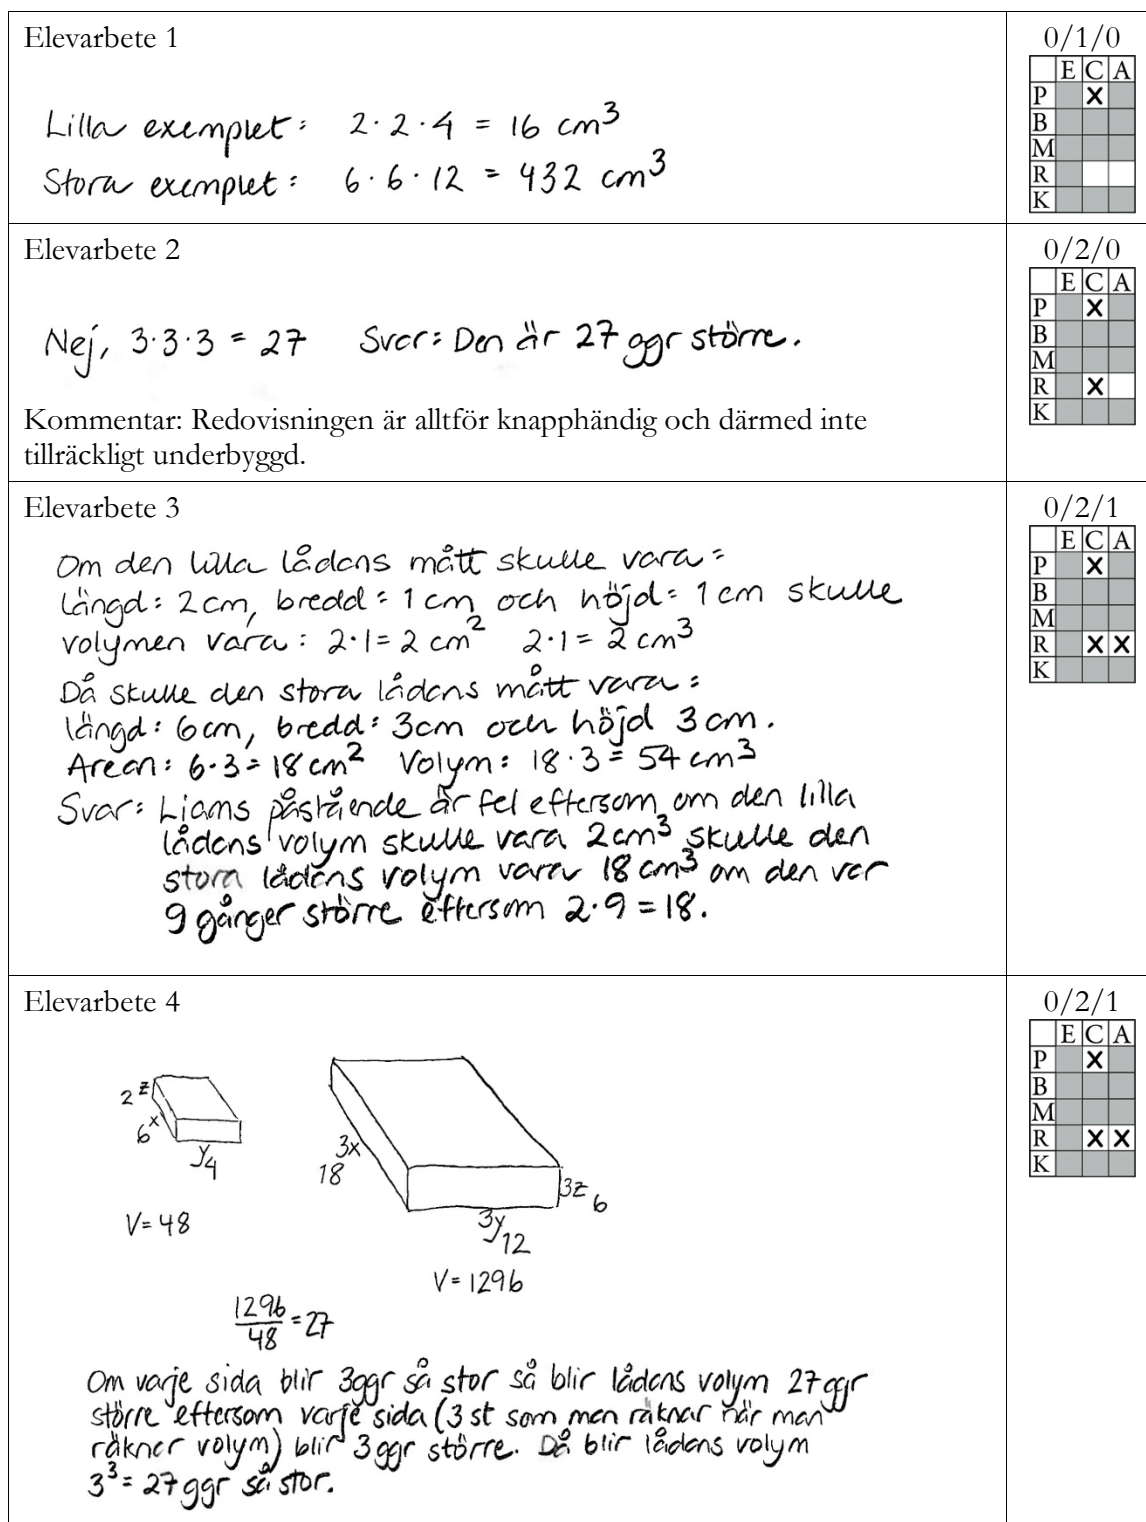 Elevarbete 1
0/1/0
E C A
P X
B
M
R
K
Lilla exemplet: 2·2·4 = 16 cm³
Stora exemplet: 6·6·12 = 432 cm³
Elevarbete 2
0/2/0
E C A
P X
B
M
R X
K
Nej, 3·3·3 = 27 Svar: Den är 27 ggr större.
Kommentar: Redovisningen är alltför knapphändig och därmed inte
tillräckligt underbyggd.
Elevarbete 3
0/2/1
E C A
P X
B
M
R X X
K
Om den lilla lådans mått skulle vara:
Längd: 2cm, bredd: 1cm och höjd: 1cm skulle
volymen vara: 2·1 = 2 cm² 2·1 = 2 cm³
Då skulle den stora lådans mått vara:
längd: 6cm, bredd: 3cm och höjd 3cm.
Arean: 6·3 = 18 cm² Volym: 18·3 = 54 cm³
Svar: Liams påstående är fel eftersom om den lilla
lådans volym skulle vara 2cm³ skulle den
stora lådans volym vara 18 cm³ om den var
9 gånger större eftersom 2·9 = 18.
Elevarbete 4
0/2/1
E C A
P X
B
M
R X X
K
2 z
6 x
y 4
V = 48
3x
18
3z 6
3y 12
V = 1296
1296/48 = 27
Om varje sida blir 3ggr så stor så blir lådans volym 27 ggr
större eftersom varje sida (3 st som man räknar när man
räknar volym) blir 3 ggr större. Då blir lådans volym
3³ = 27 ggr så stor.